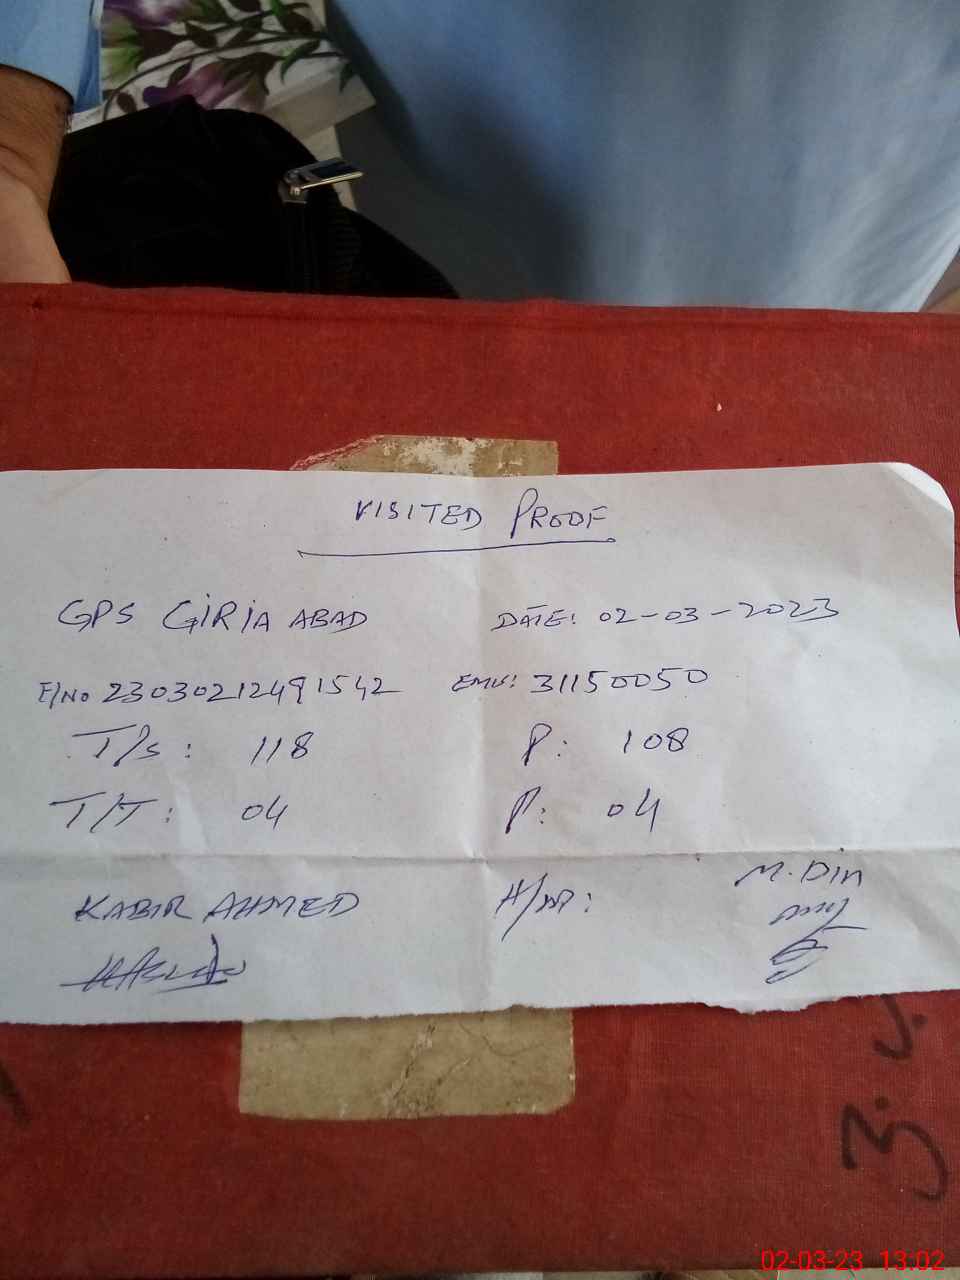 VISITED PROOF
GPS GIRIA ABAD DATE: 02-03-2023
F/No 23030212491542 EMIS: 31150050
T/S: 118 P: 108
T/T: 04 P: 04
KABIR AHMED H/M: M. Din
02-03-23 13:02